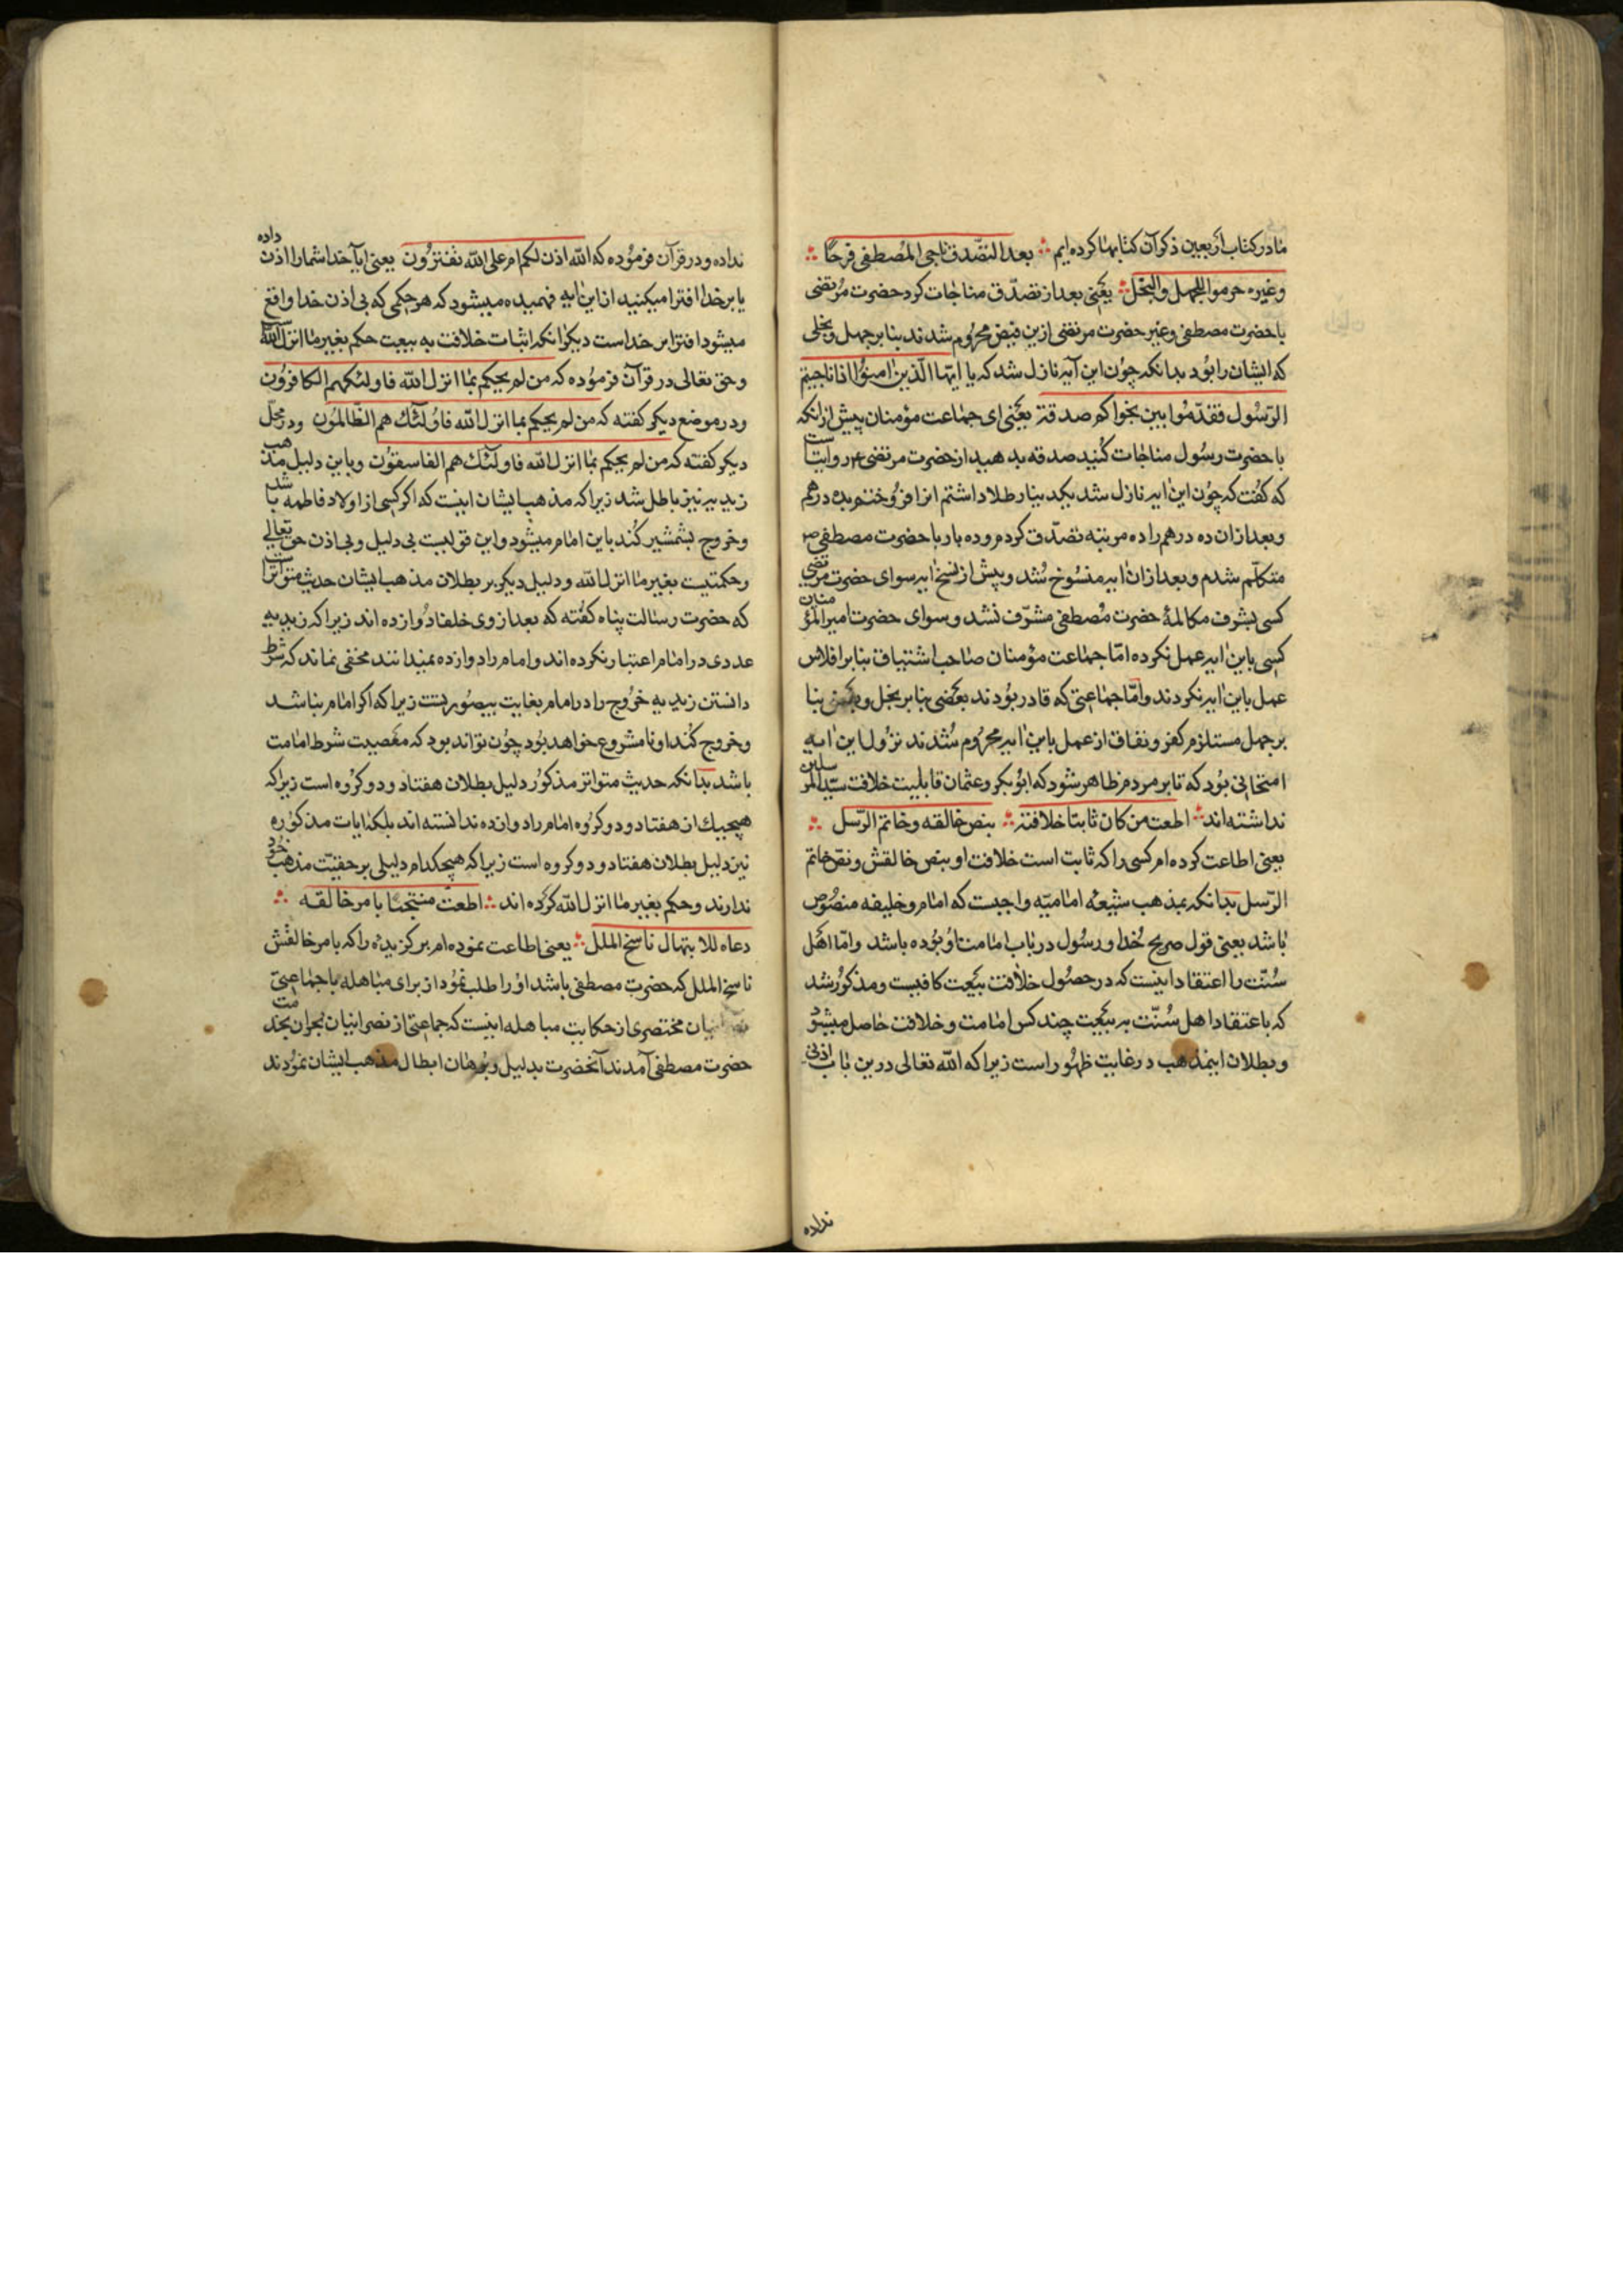 ما در کتاب اربعین ذکر آن کتابها کرده ایم ∴ بعد التصدق ناجی المصطفی فرحًا ∴
وغیره حرموا للجهل والبخل ∴ یعنی بعد از تصدّق مناجات کرد حضرت مرتضی
با حضرت مصطفی وغیر حضرت مرتضی ازین فیض محروم شدند بنابر جهل وبخلی
که ایشان را بود بدانکه چون این آیه نازل شد که یا ایّها الّذین امنوا اذا ناجیتم
الرّسول فقدّموا بین یدی نجواکم صدقة یعنی ای جماعت مؤمنان پیش ازانکه
با حضرت رسول مناجات کنید صدقه بدهید از حضرت مرتضی ع روایتست
که گفت که چون این ایه نازل شد یکدینار طلا داشتم انرا فروختم بده درهم
وبعد ازان ده درهم را ده مرتبه تصدّق کردم وده بار با حضرت مصطفی ص
متکلّم شدم وبعد ازان ایه منسوخ شد وپیش از نسخ ایه سوای حضرت مرتضی
کسی بشرف مکالمۀ حضرت مصطفی مشرّف نشد وسوای حضرت امیر المؤمنان
کسی باین ایه عمل نکرده امّا جماعت مؤمنان صاحب اشتیاق بنابر افلاس
عمل باین ایه نکردند وامّا جماعتی که قادر بودند بعضی بنابر بخل وبعضی بنا
بر جهل مستلزم کفر ونفاق از عمل باین ایه محروم شدند نزول این ایه
امتحانی بود که تا بر مردم ظاهر شود که ابوبکر وعثمان قابلیت خلافت سیّد المرسلین
نداشته اند ∴ اطعت من کان ثابتا خلافته ∴ بنص خالقه وخاتم الرّسل ∴
یعنی اطاعت کرده ام کسی را که ثابت است خلافت او بنص خالقش ونص خاتم
الرّسل بدانکه بمذهب شیعه امامیّه واجبست که امام وخلیفه منصوص
باشد یعنی قول صریح خدا ورسول در باب امامت او بوده باشد وامّا اهل
سنّت را اعتقاد اینست که در حصول خلافت بیعت کافیست ومذکور شد
که باعتقاد اهل سنّت به بیعت چند کس امامت وخلافت حاصل میشود
وبطلان اینمذهب در غایت ظهور است زیرا که الله تعالی درین باب اذنی
نداده
نداده ودر قرآن فرموده که الله اذن لکم ام علی الله تفترون یعنی ایا خدا شما را اذن داده
یا بر خدا افترا میکنید ازاین ایه فهمیده میشود که هر حکمی که بی اذن خدا واقع
میشود افترا بر خداست دیگر انکه اثبات خلافت به بیعت حکم بغیر ما انزل الله است
وحق تعالی در قرآن فرموده که من لم یحکم بما انزل الله فاولئک هم الکافرون
ودر موضع دیگر گفته که من لم یحکم بما انزل الله فاولئک هم الظّالمون ودر محلّ
دیگر گفته که من لم یحکم بما انزل الله فاولئک هم الفاسقون وباین دلیل مذهب
زیدیه نیز باطل شد زیرا که مذهب ایشان اینست که اگر کسی از اولاد فاطمه باشد
وخروج بشمشیر کند باین امام میشود واین قولیست بی دلیل وبی اذن حق تعالی
وحکمتیست بغیر ما انزل الله ودلیل دیگر بر بطلان مذهب ایشان حدیث متواتر است
که حضرت رسالت پناه گفته که بعد از وی خلفا دوازده اند زیرا که زیدیه
عددی در امام اعتبار نکرده اند وامام را دوازده نمیدانند مخفی نماند که شرط
دانستن زیدیه خروج را در امام بغایت بیصورتست زیرا که اگر امام نباشد
وخروج کند او نامشروع خواهد بود چون تواند بود که معصیت شرط امامت
باشد بدانکه حدیث متواتر مذکور دلیل بطلان هفتاد ودو گروه است زیرا که
هیچیک از هفتاد ودو گروه امام را دوازده ندانسته اند بلکه ایات مذکوره
نیز دلیل بطلان هفتاد ودو گروه است زیرا که هیچکدام دلیلی بر حقیّت مذهب خود
ندارند وحکم بغیر ما انزل الله کرده اند ∴ اطعت منتجبا بامر خالقه ∴
دعاه للابتهال ناسخ الملل ∴ یعنی اطاعت نموده ام برگزیدۀ را که بامر خالقش
ناسخ الملل که حضرت مصطفی باشد او را طلب نمود از برای مباهله با جماعتی
مختصری از حکایت مباهله اینست که جماعتی از نصرانیان نجران بخدمت
حضرت مصطفی آمدند آنحضرت بدلیل وبرهان ابطال مذهب ایشان نمودند